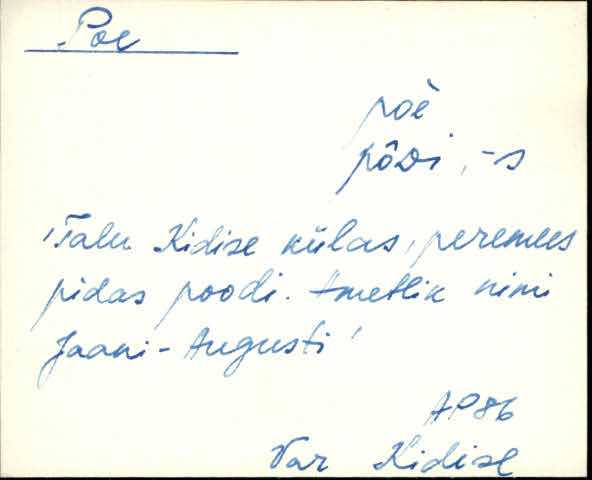 Poe
poè
pôᴅi, -s
'Talu Kidise külas, peremees
pidas poodi. Ametlik nimi
Jaani-Augusti'
AP86
Var Kidise